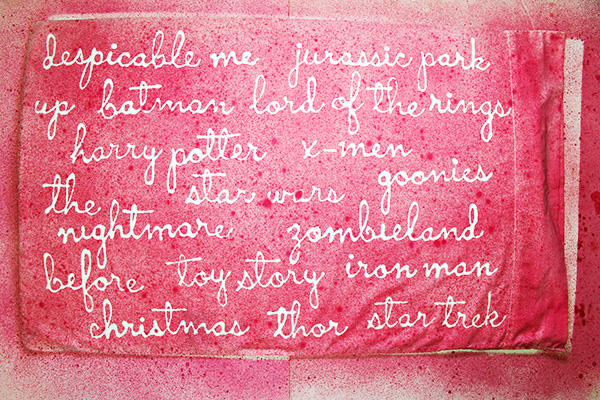 despicable me jurassic park
up batman lord of the rings
harry potter x-men
the star wars goonies
nightmare zombieland
before toy story iron man
christmas thor star trek